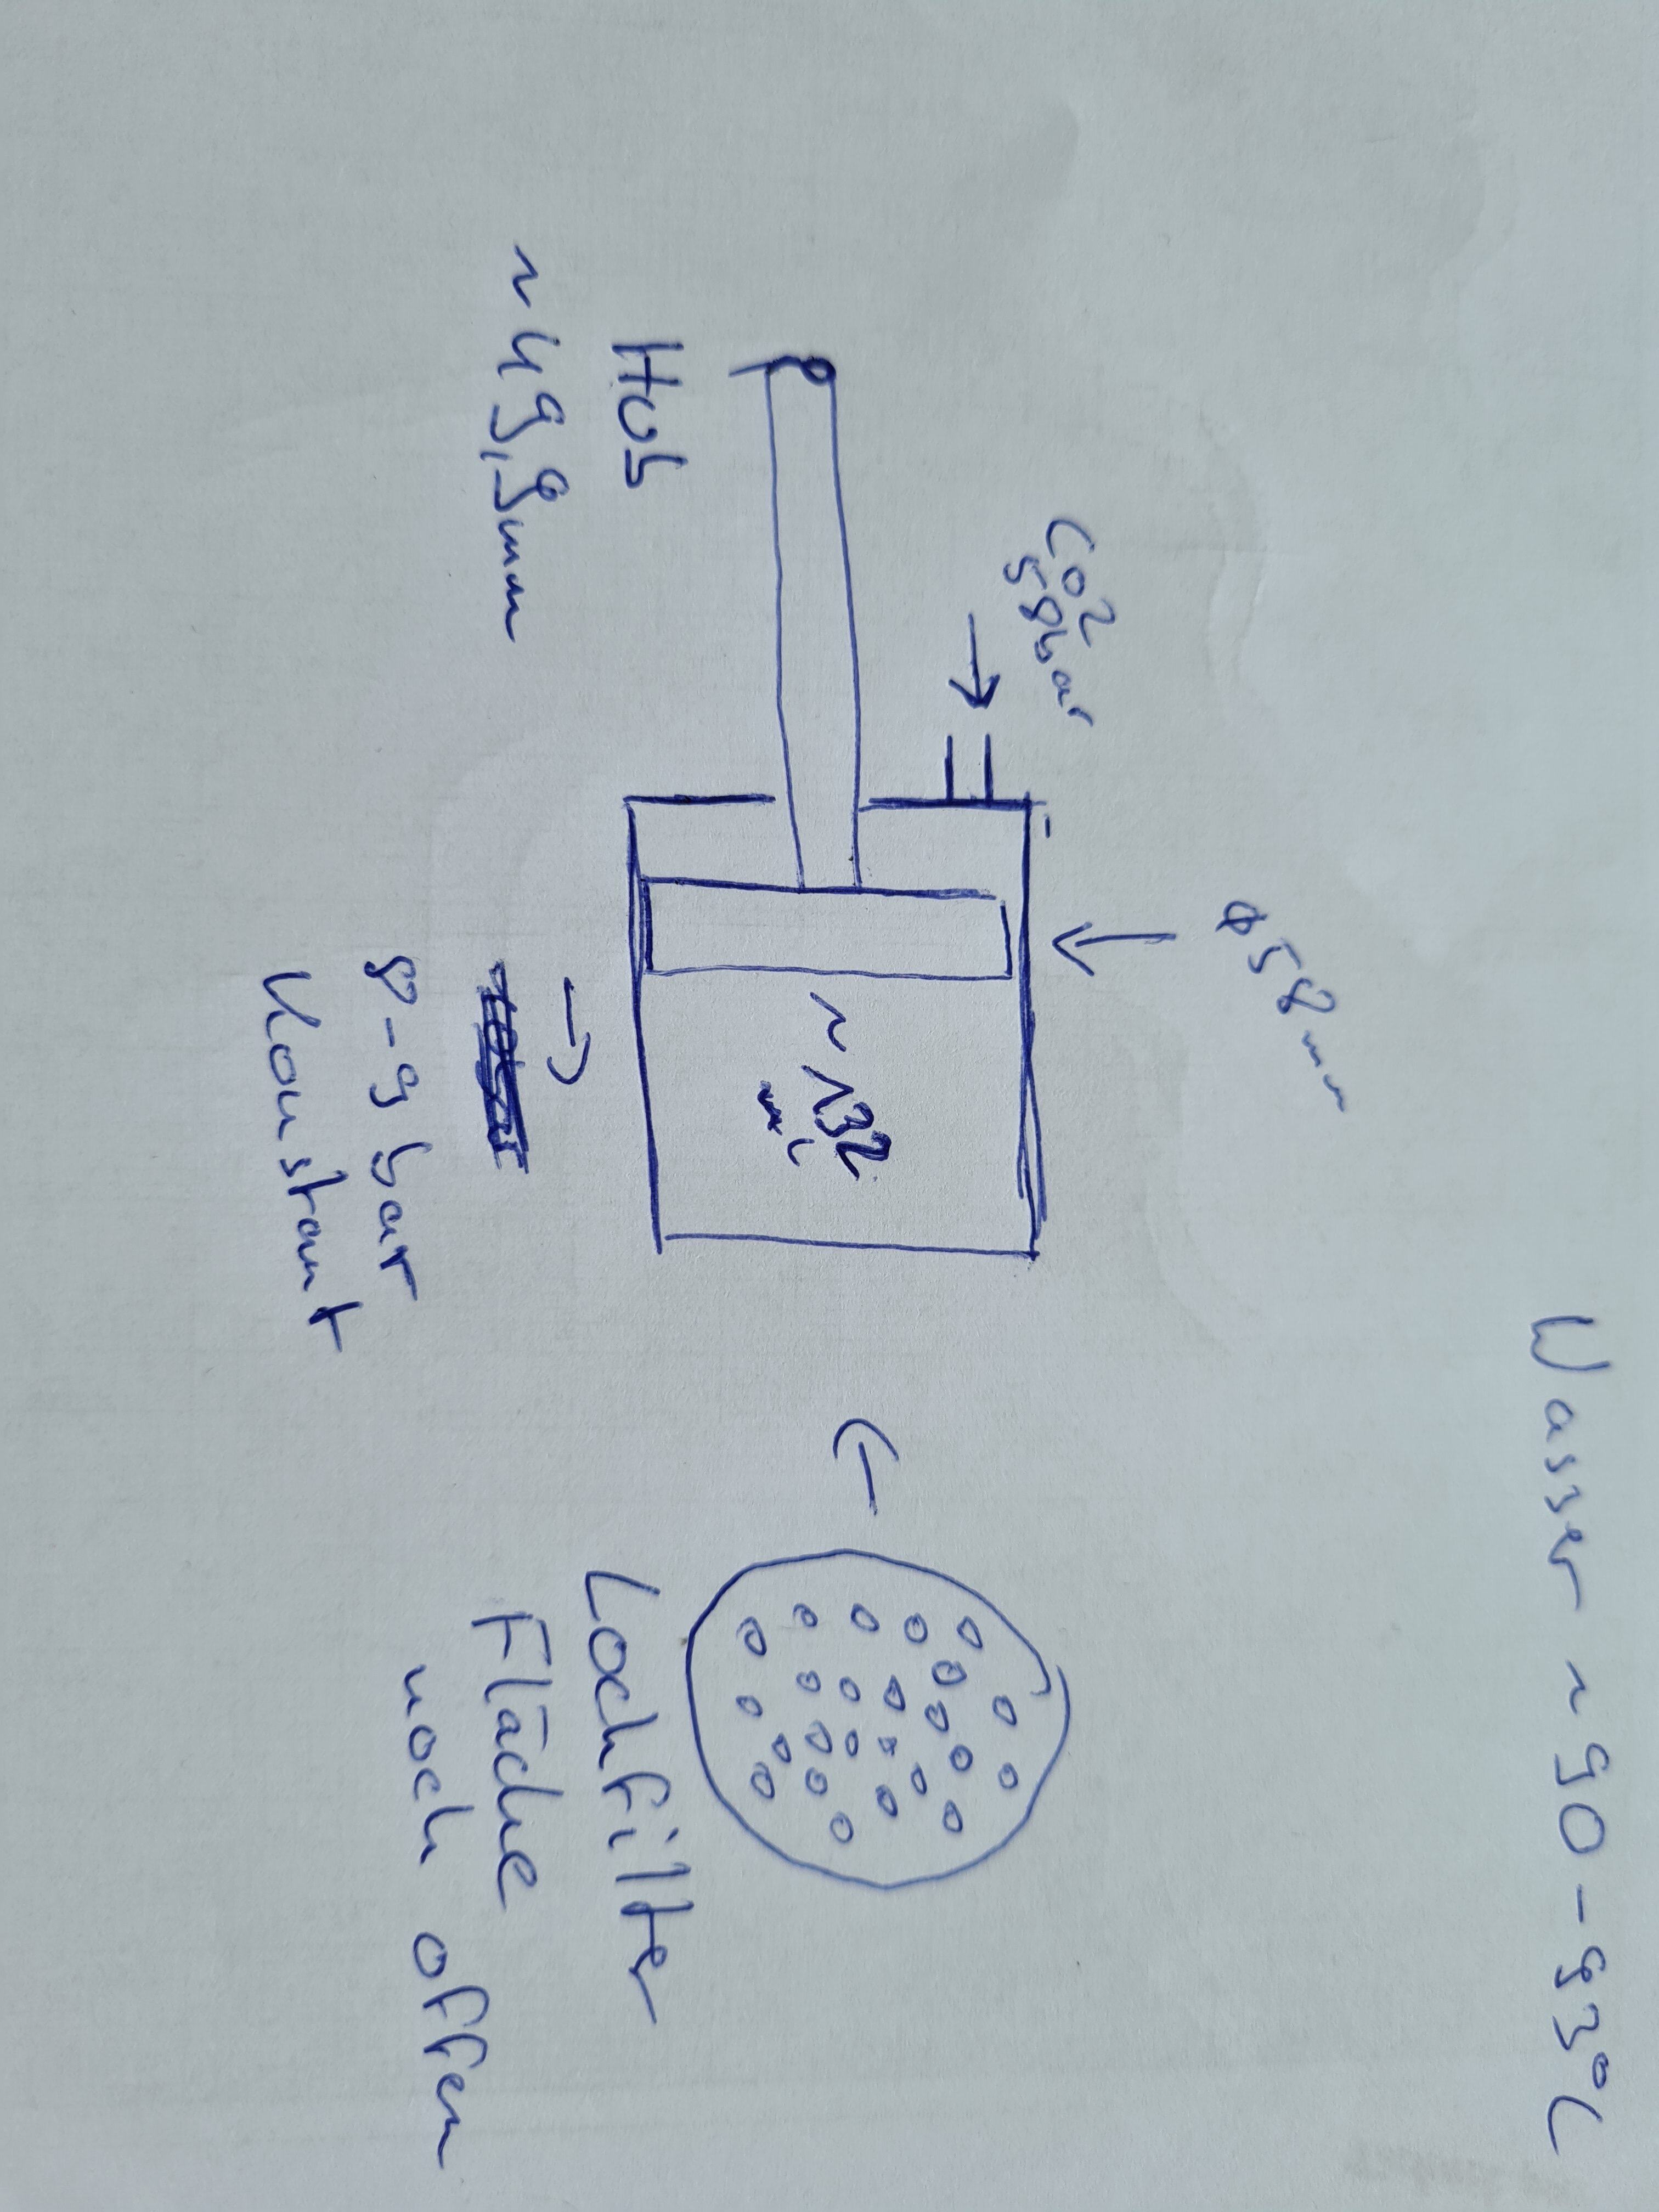 Wasser ~ 90-93°C
ø58mm
CO2
58bar
~ 132
ml
Hub
~ 49,9mm
8-9 bar
Konstant
Lochfilter
Fläche
noch offen